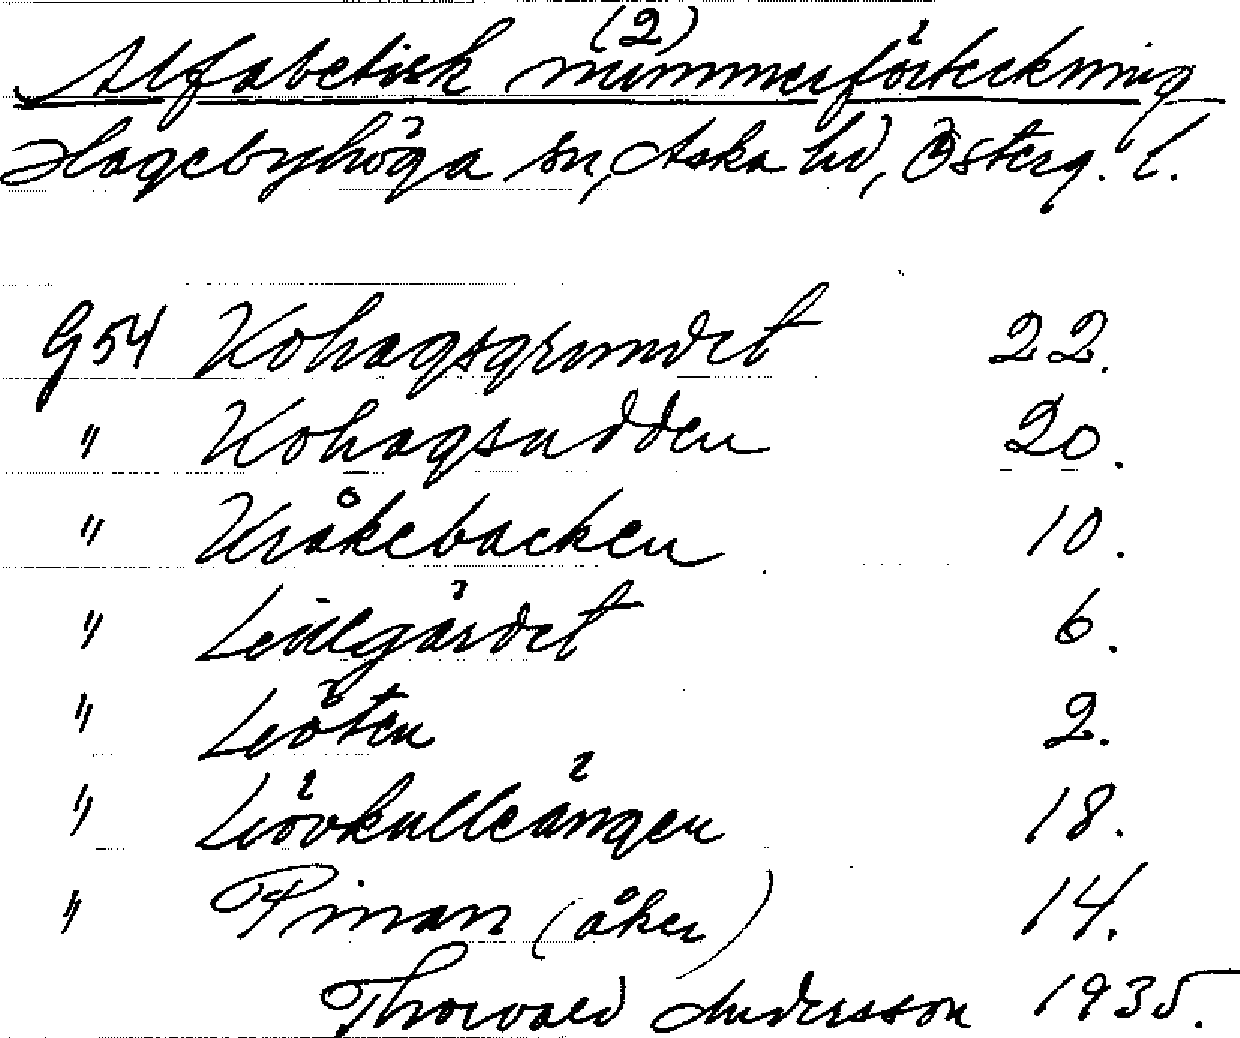 (2)
Alfabetisk nummerförteckning
Hagebyhöga sn, Aska hd, Österg. l.
G54 Kohagsgrundet 22.
" Kohagsudden 20.
" Kråkebacken 10.
" Lillgärdet 6.
" Löten 2.
" Lövkulleängen 18.
" Pinan (åker) 14.
Thorvald Andersson 1935.